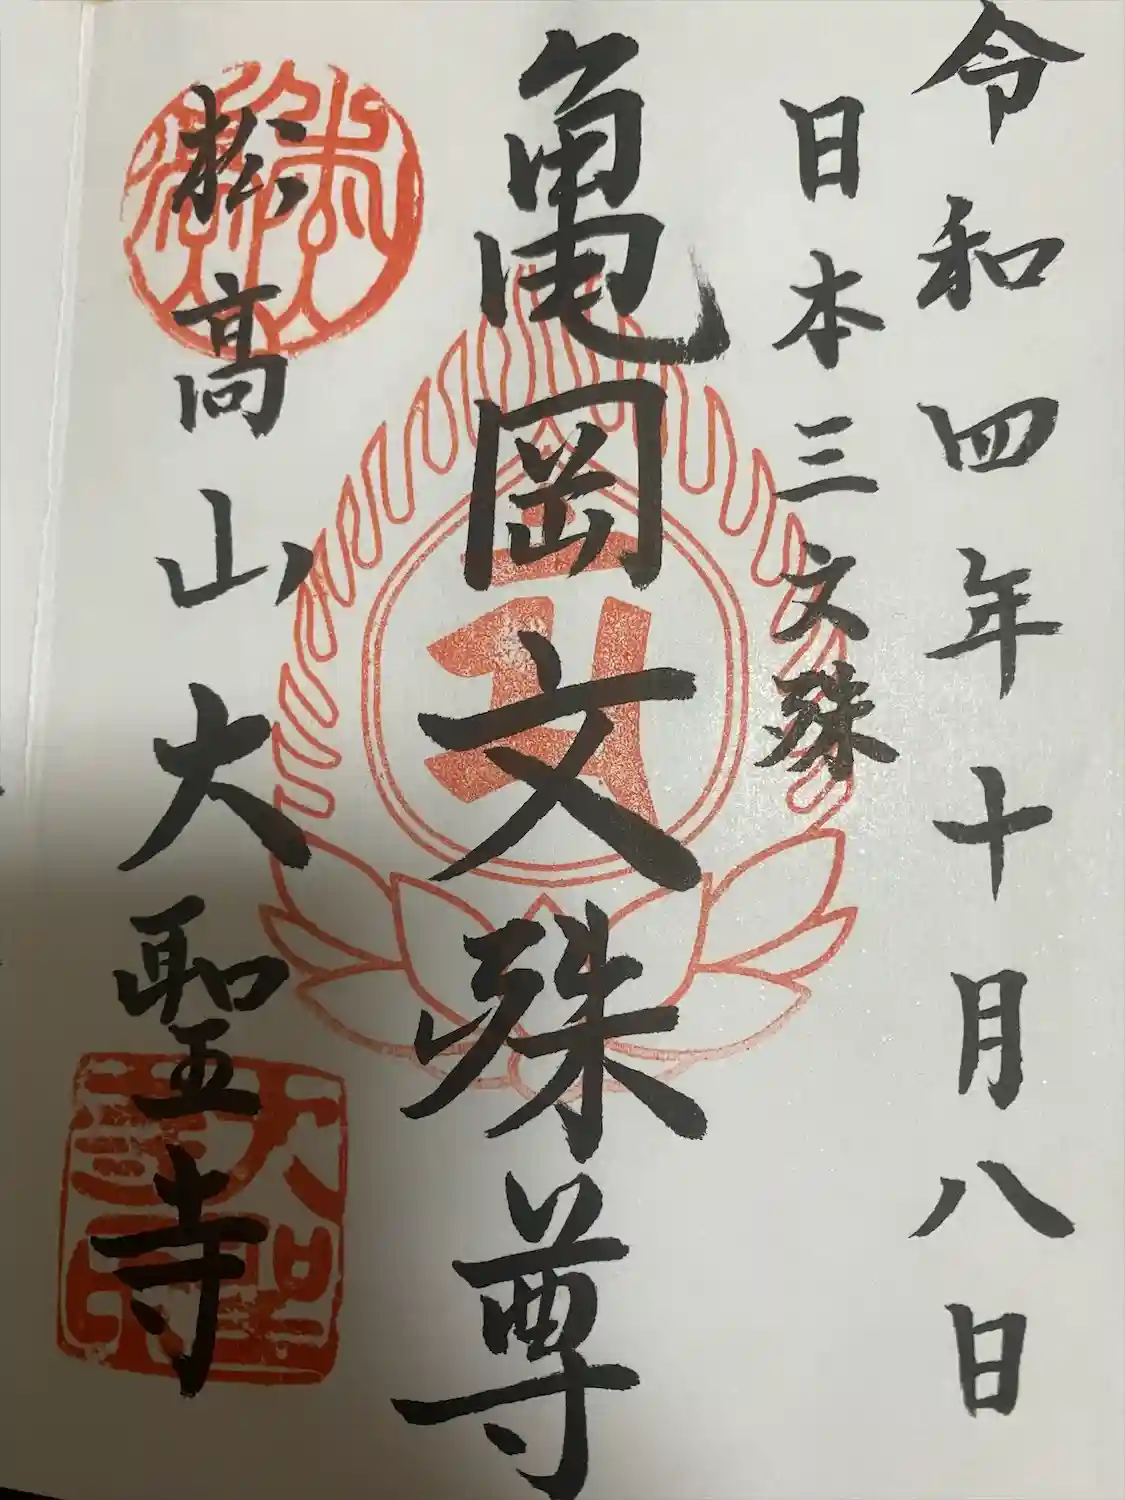 令和四年十月八日
日本三文殊
亀岡文殊尊
松高山大聖寺